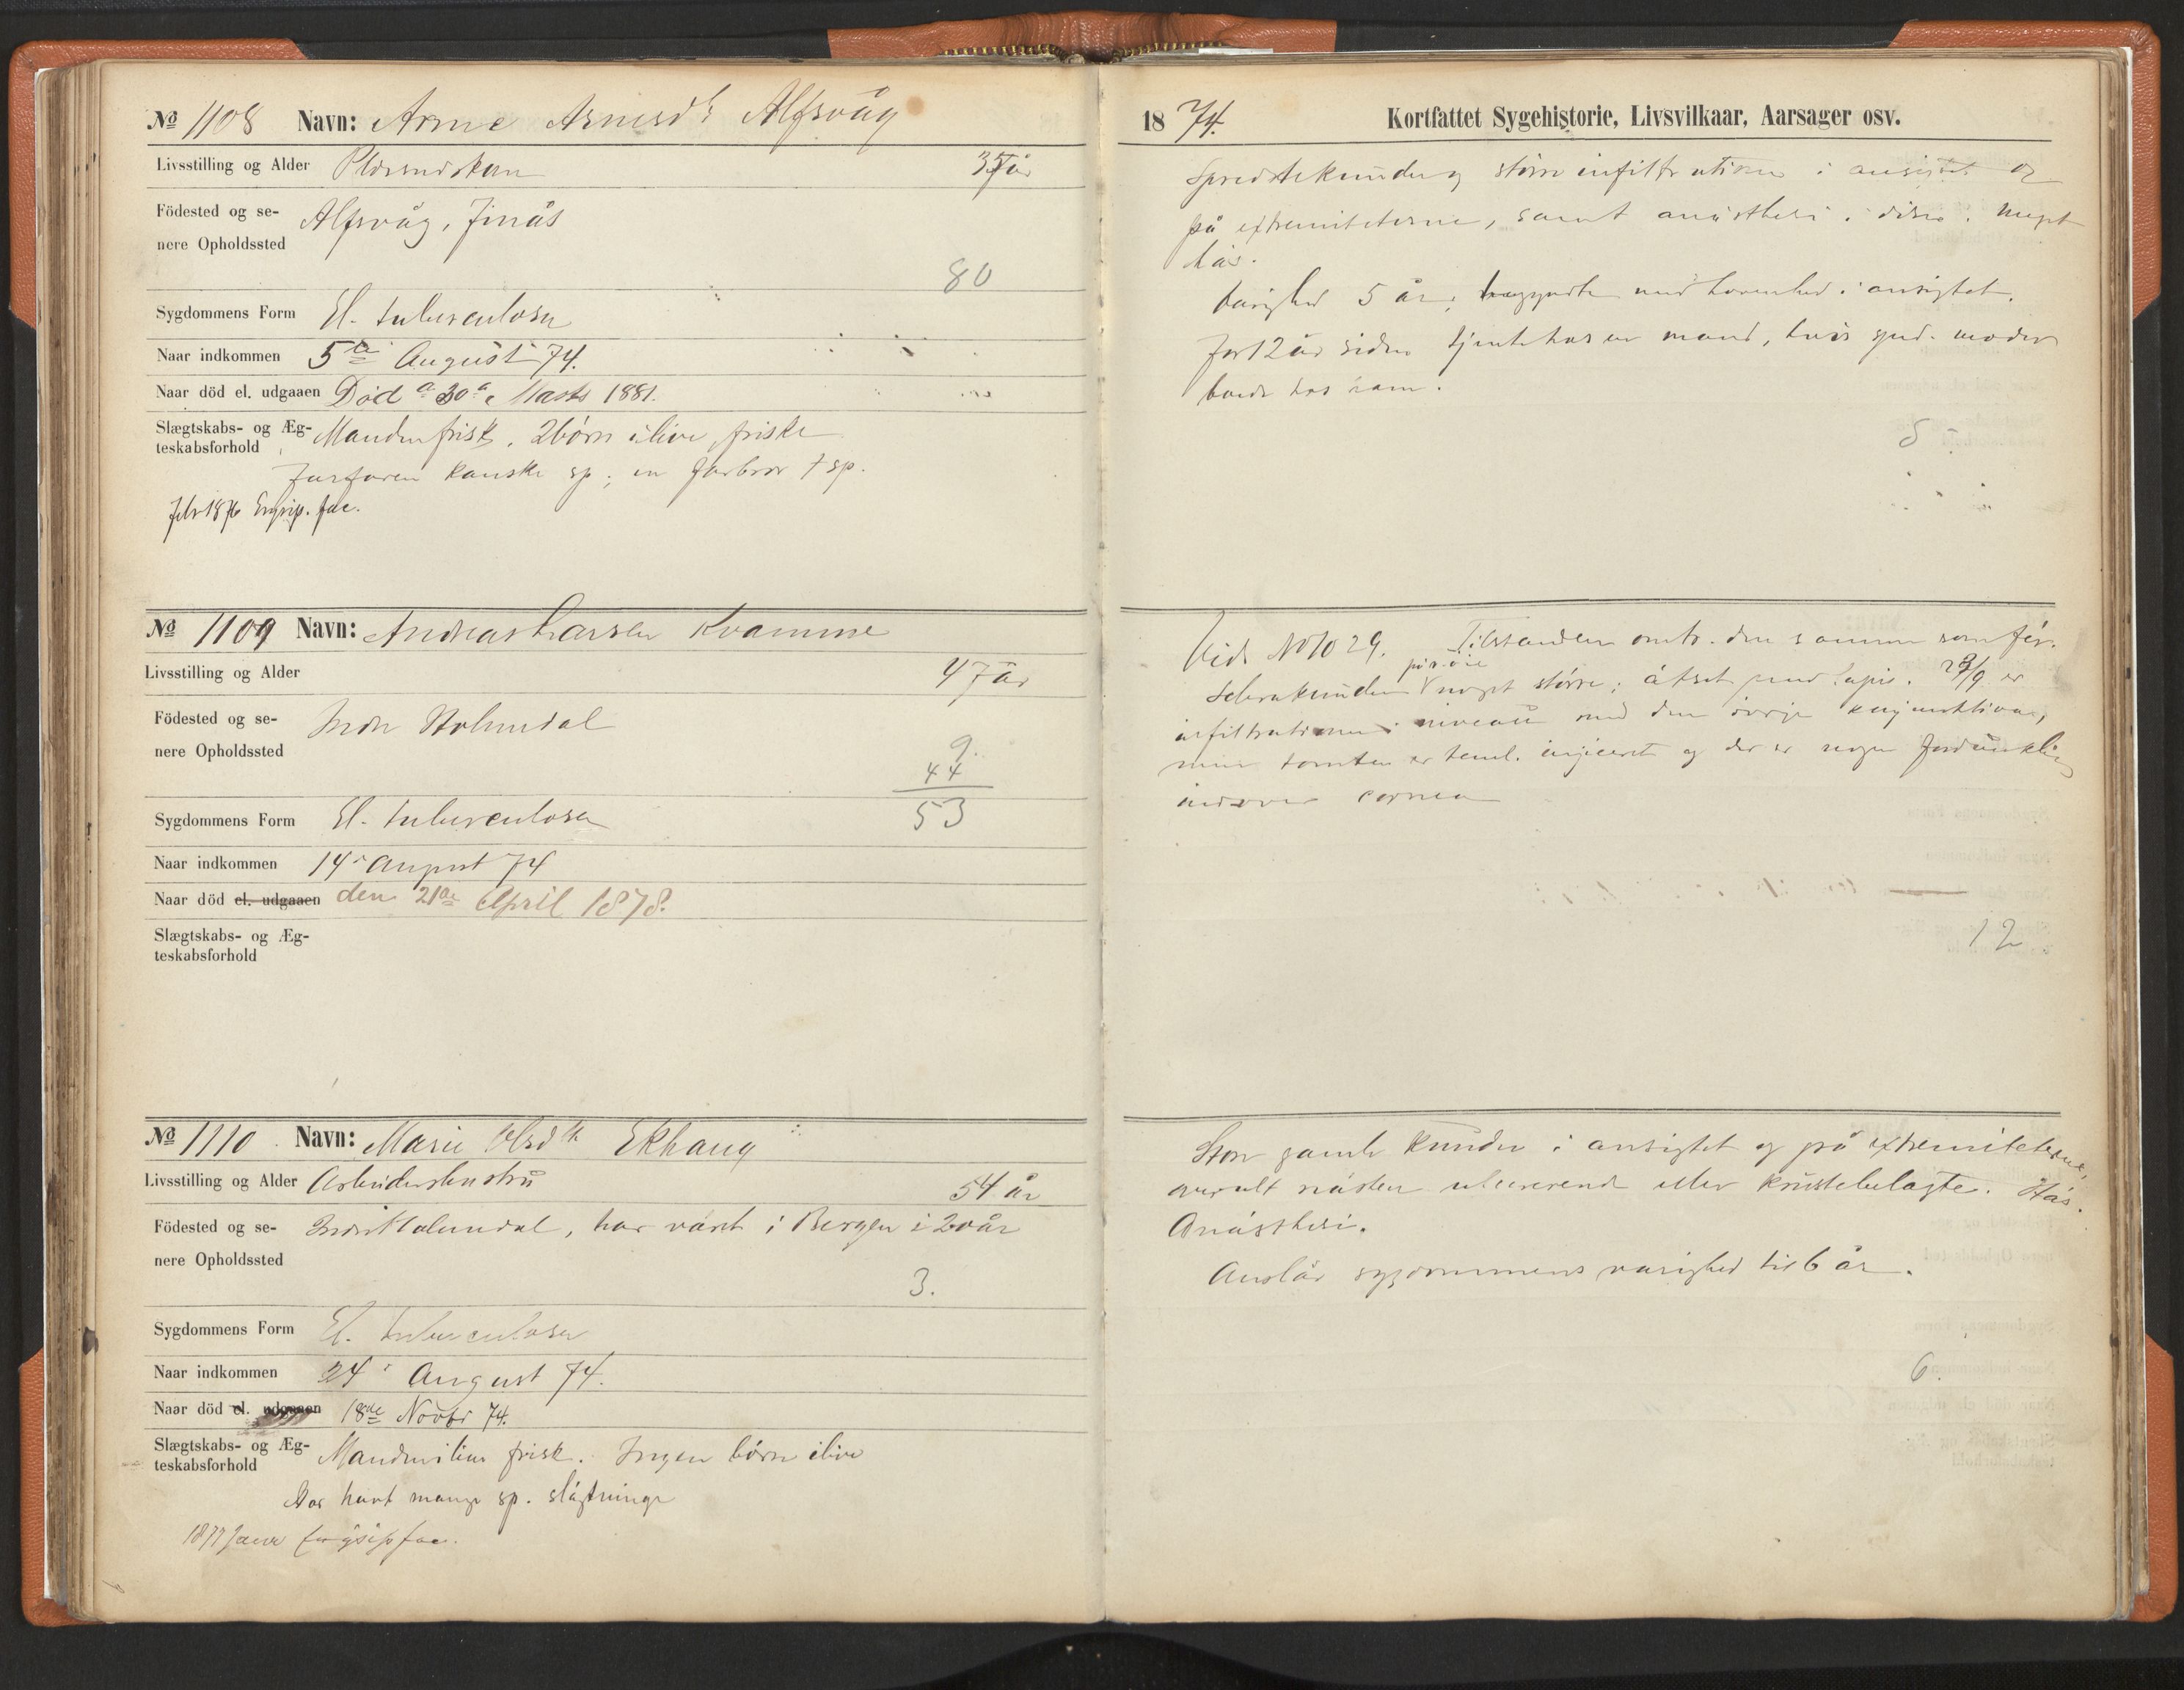 No 1108 Navn: Anne Arnesd. Alfsvåg
Livsstilling og Alder 35 år
Födested og se-
nere Opholdssted Alfsvåg, Finås
80
Sygdommens Form El. tuberculosa
Naar indkommen 5te August 74.
Naar död el. udgaaen Död 30 Marts 1881.
Slægtskabs- og Æg-
teskabsforhold Manden frisk. 2 börn ilive, friske
Farfaren kanske sp; en farbror † sp.
Febr 1876 Erysip. fac.
No 1109 Navn: Andreas Larsen Kvamme
Livsstilling og Alder 47 år
Födested og se-
nere Opholdssted Indre Holmedal
9.
44
53
Sygdommens Form El. tuberculosa
Naar indkommen 14 August 74
Naar död el. udgaaen den 21de April 1878.
Slægtskabs- og Æg-
teskabsforhold
No 1110 Navn: Marie Olsdtr Ekhaug
Livsstilling og Alder Arbeiderhustru 54 år
Födested og se-
nere Opholdssted Indre Holmedal, har värt i Bergen i 20 år
3.
Sygdommens Form El. tuberculosa
Naar indkommen 24 August 74.
Naar död el. udgaaen 18de Novbr 74.
Slægtskabs- og Æg-
teskabsforhold frisk. Ingen börn ilive
Har havt mange sp. slägtninge
1877 Janr Erysip fac.
1874. Kortfattet Sygehistorie, Livsvilkaar, Aarsager osv.
Spredte knuder og större infiltrationer i ansigtet og
på extremiteterne, samt anästhesi i disse. Meget
häs.
Varighed 5 år; begyndte med hovenhed i ansigtet.
For 12 år siden tjente hos en mand, hvis spd. moder
boede hos ham.
5
Vide No 1029. Tilstanden omtr. den samme som för.
Scleraknuden på v. öie noget större; ätset med lapis. 23/9 er
infiltrationen i niveau med den övrige conjunktiva,
men tomten er teml. injiceret og der er nogen fordunkling
indover cornea
12
Store gamle knuder i ansigtet og på extremiteterne,
overalt nästen ulcererende eller krustebelagte. Häs.
Anästhesi.
Anslår sygdommens varighed til 6 år.
6.